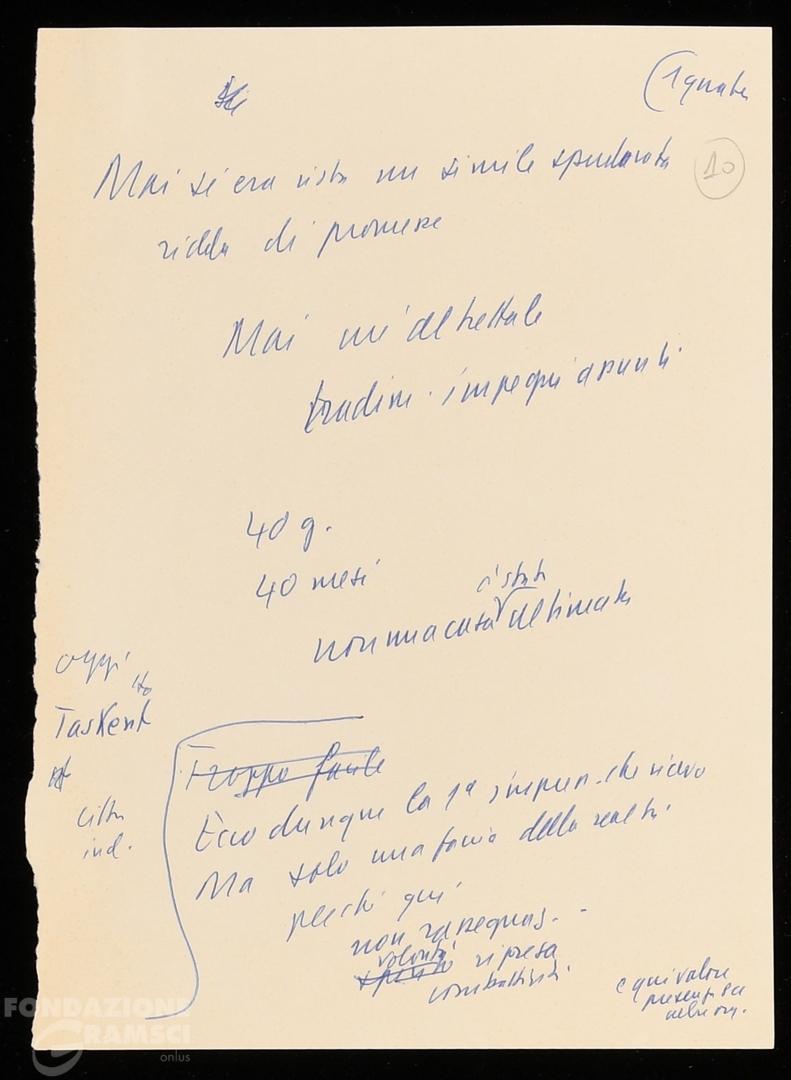 (1 quater
10
Mai si era vista una simile spudorata
ridda di promesse
Mai un'altrettale
tradim. impegni assunti.
40 g.
40 mesi
è stata
non una casa ultimata
oggi
Taskent
città
ind.
Troppo facile
Ecco dunque la 1a impress. che ricavo
Ma solo una faccia della realtà
perché qui
non rassegnaz.
volontà
spirito ripresa
combattività.
equivalore
presenti sa
FONDAZIONE
GRAMSCI
onlus